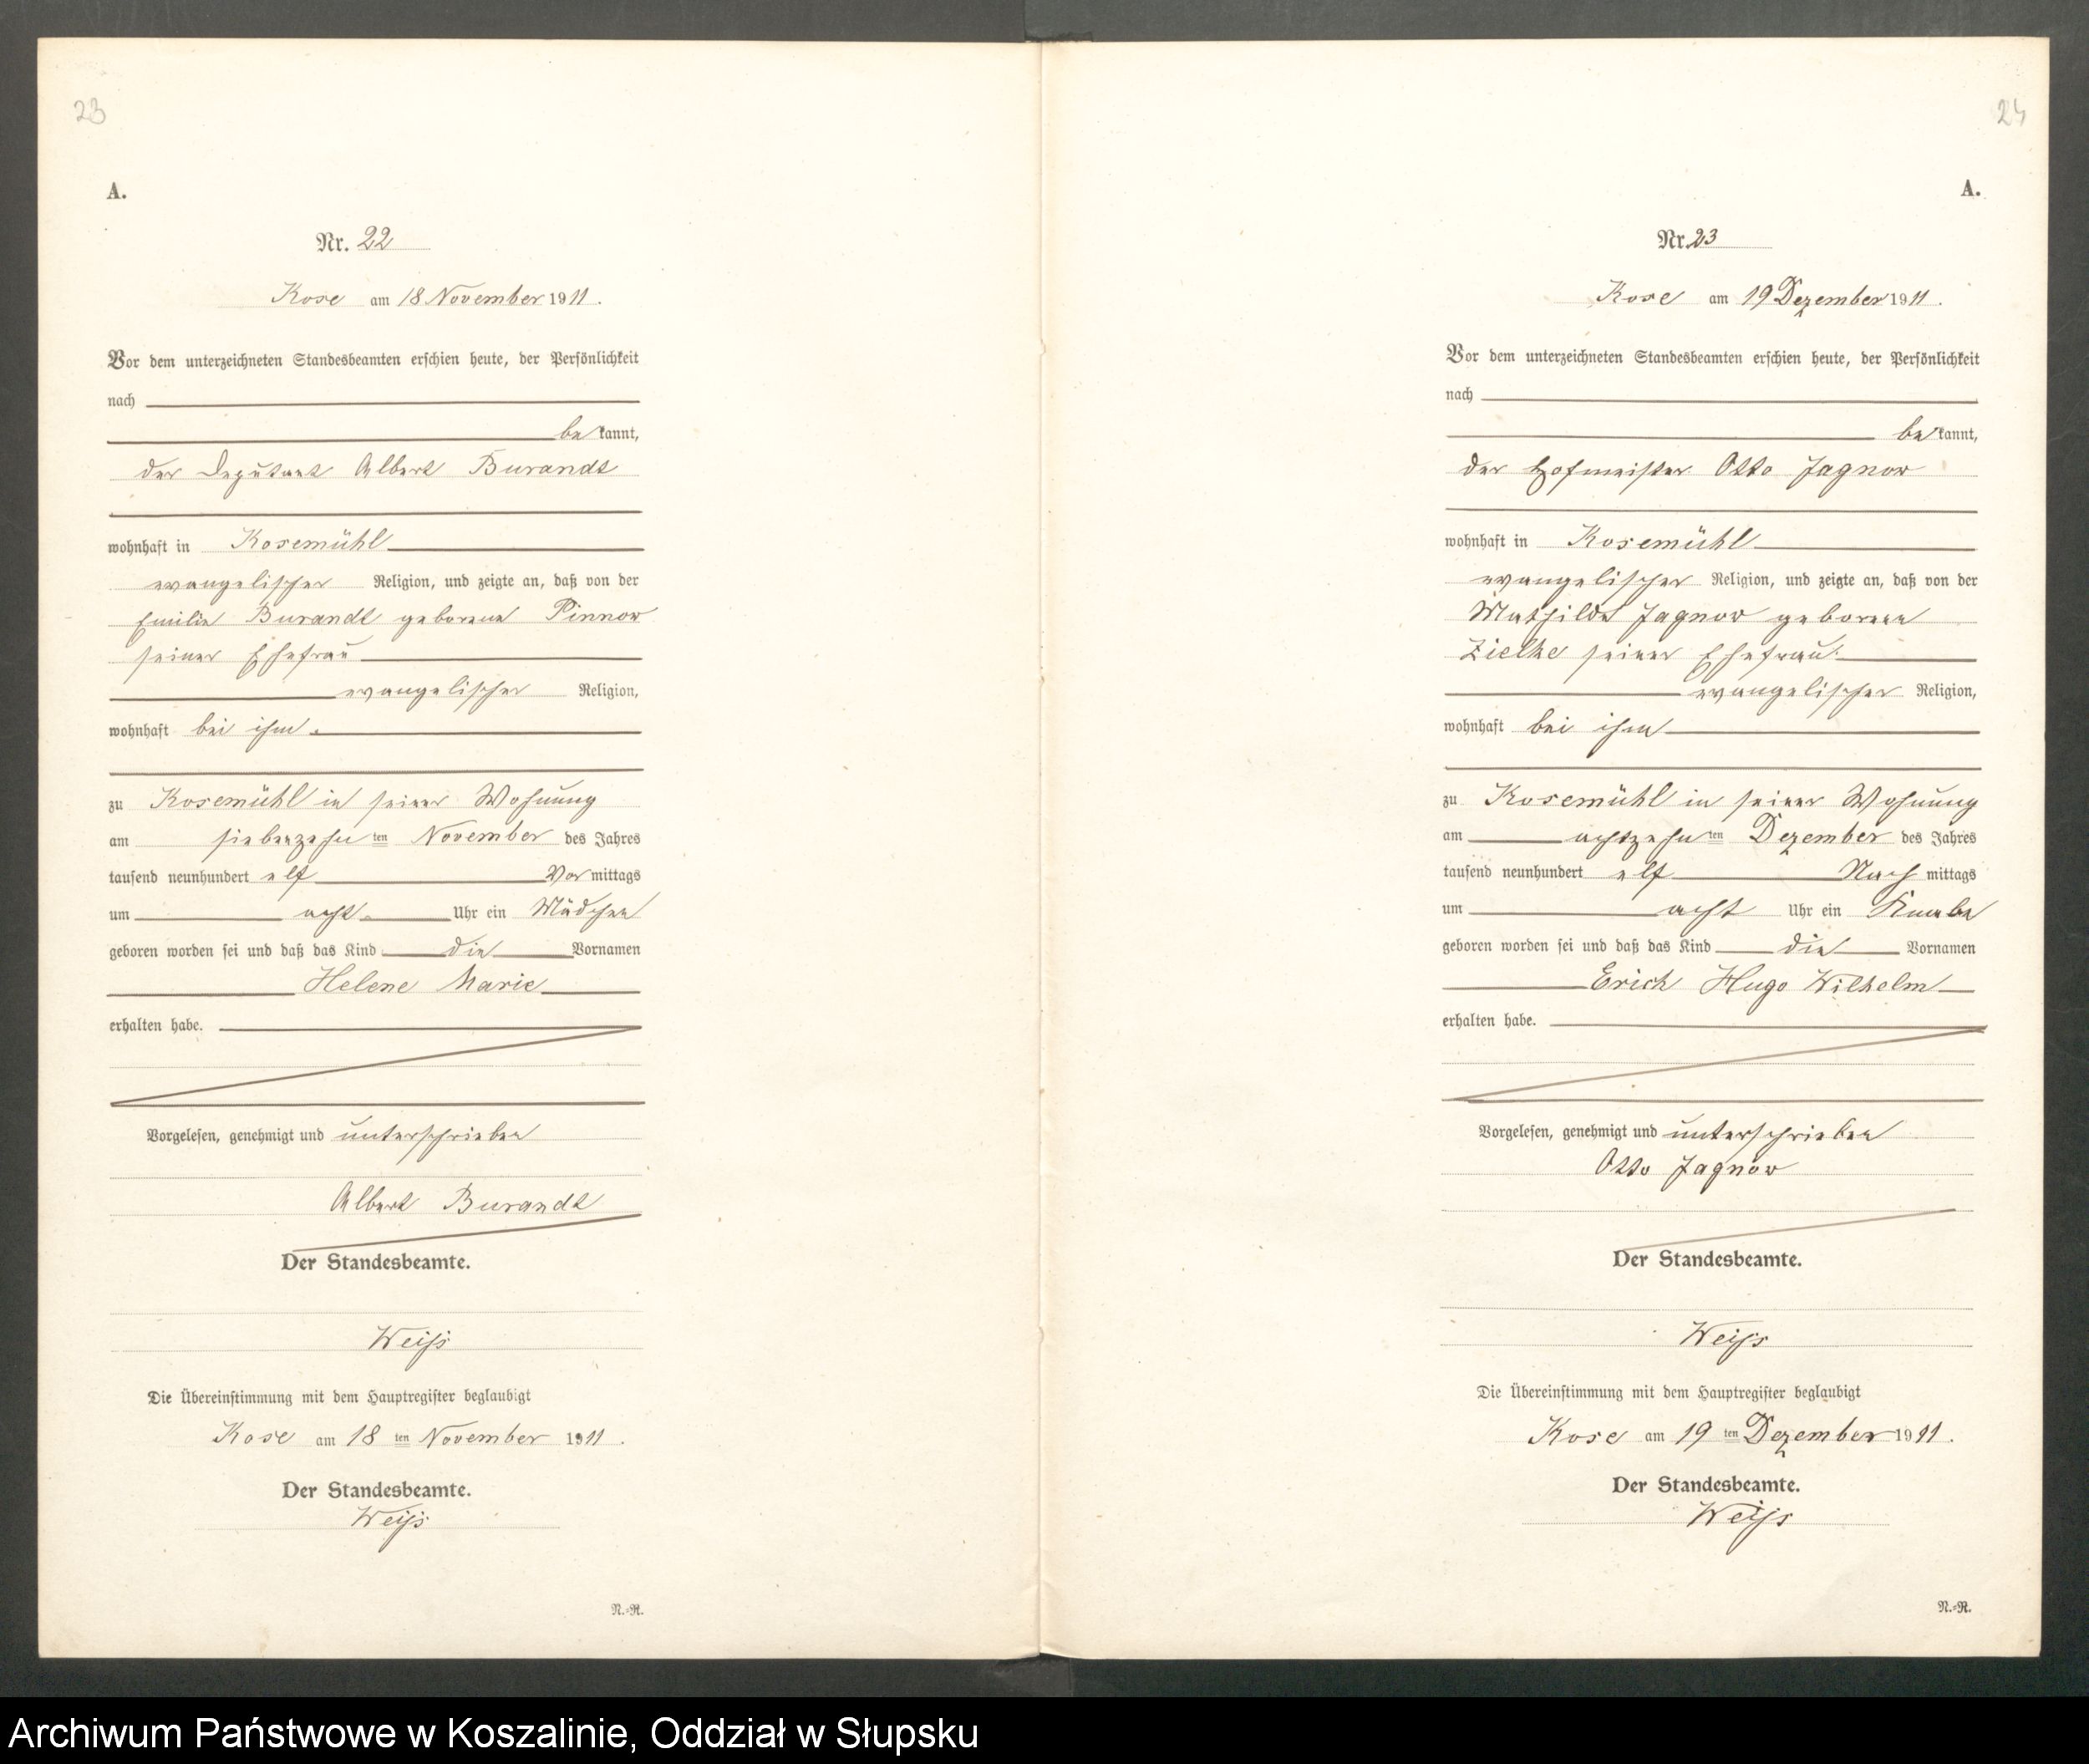 23
A.
Nr. 22
Kose am 18 November 1911.
Vor dem unterzeichneten Standesbeamten erschien heute, der Persönlichkeit
nach
bekannt,
der Deputant Albert Burandt
wohnhaft in Kosemühl
evangelischer Religion, und zeigte an, daß von der
Emilie Burandt geborene Pinnow
seiner Ehefrau
evangelischer Religion,
wohnhaft bei ihm.
zu Kosemühl in seiner Wohnung
am siebenzehnten November des Jahres
tausend neunhundert elf Vormittags
um acht Uhr ein Mädchen
geboren worden sei und daß das Kind die Vornamen
Helene Marie
erhalten habe.
Vorgelesen, genehmigt und unterschrieben
Albert Burandt
Der Standesbeamte.
Weiss
Die Übereinstimmung mit dem Hauptregister beglaubigt
Kose am 18 ten November 1911.
Der Standesbeamte.
Weiss
N.=R.
24
A.
Nr. 23
Kose am 19 Dezember 1911.
Vor dem unterzeichneten Standesbeamten erschien heute, der Persönlichkeit
nach
bekannt,
der Hofmeister Otto Jagnow
wohnhaft in Kosemühl
evangelischer Religion, und zeigte an, daß von der
Mathilde Jagnow geborene
Zielke seiner Ehefrau
evangelischer Religion,
wohnhaft bei ihm
zu Kosemühl in seiner Wohnung
am achtzehnten Dezember des Jahres
tausend neunhundert elf Nachmittags
um acht Uhr ein Knabe
geboren worden sei und daß das Kind die Vornamen
Erich Hugo Wilhelm
erhalten habe.
Vorgelesen, genehmigt und unterschrieben
Otto Jagnow
Der Standesbeamte.
Weiss
Die Übereinstimmung mit dem Hauptregister beglaubigt
Kose am 19 ten Dezember 1911.
Der Standesbeamte.
Weiss
N.=R.
Archiwum Państwowe w Koszalinie, Oddział w Słupsku